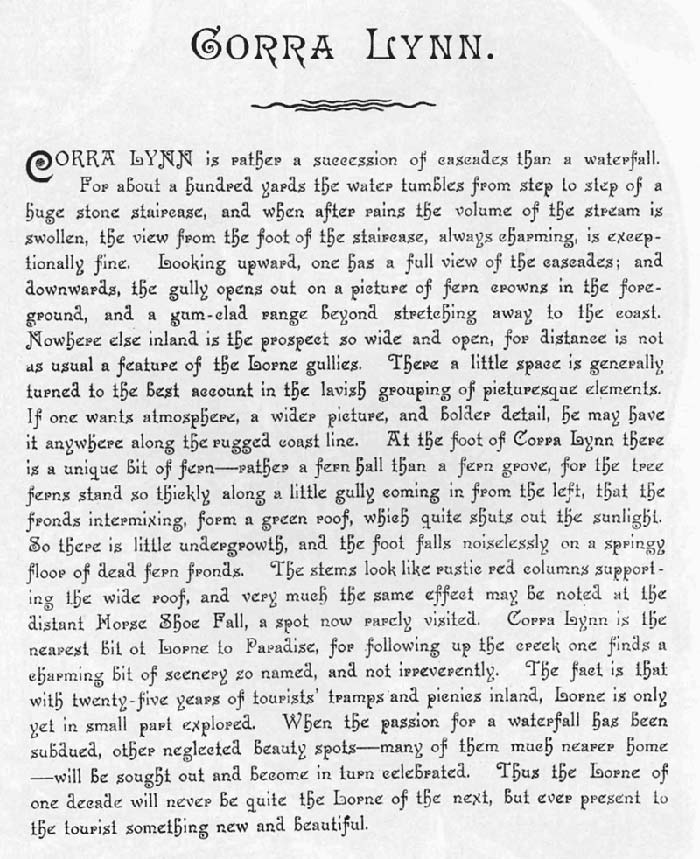 CORRA LYNN.
CORRA LYNN is rather a succession of cascades than a waterfall.
For about a hundred yards the water tumbles from step to step of a
huge stone staircase, and when after rains the volume of the stream is
swollen, the view from the foot of the staircase, always charming, is excep-
tionally fine. Looking upward, one has a full view of the cascades; and
downwards, the gully opens out on a picture of fern crowns in the fore-
ground, and a gum-clad range beyond stretching away to the coast.
Nowhere else inland is the prospect so wide and open, for distance is not
as usual a feature of the Lorne gullies. There a little space is generally
turned to the best account in the lavish grouping of picturesque elements.
If one wants atmosphere, a wider picture, and bolder detail, he may have
it anywhere along the rugged coast line. At the foot of Corra Lynn there
is a unique bit of fern—rather a fern hall than a fern grove, for the tree
ferns stand so thickly along a little gully coming in from the left, that the
fronds intermixing, form a green roof, which quite shuts out the sunlight.
So there is little undergrowth, and the foot falls noiselessly on a springy
floor of dead fern fronds. The stems look like rustic red columns support-
ing the wide roof, and very much the same effect may be noted at the
distant Horse Shoe Fall, a spot now rarely visited. Corra Lynn is the
nearest bit ot Lorne to Paradise, for following up the creek one finds a
charming bit of scenery so named, and not irreverently. The fact is that
with twenty-five years of tourists' tramps and picnics inland, Lorne is only
yet in small part explored. When the passion for a waterfall has been
subdued, other neglected beauty spots—many of them much nearer home
—will be sought out and become in turn celebrated. Thus the Lorne of
one decade will never be quite the Lorne of the next, but ever present to
the tourist something new and beautiful.